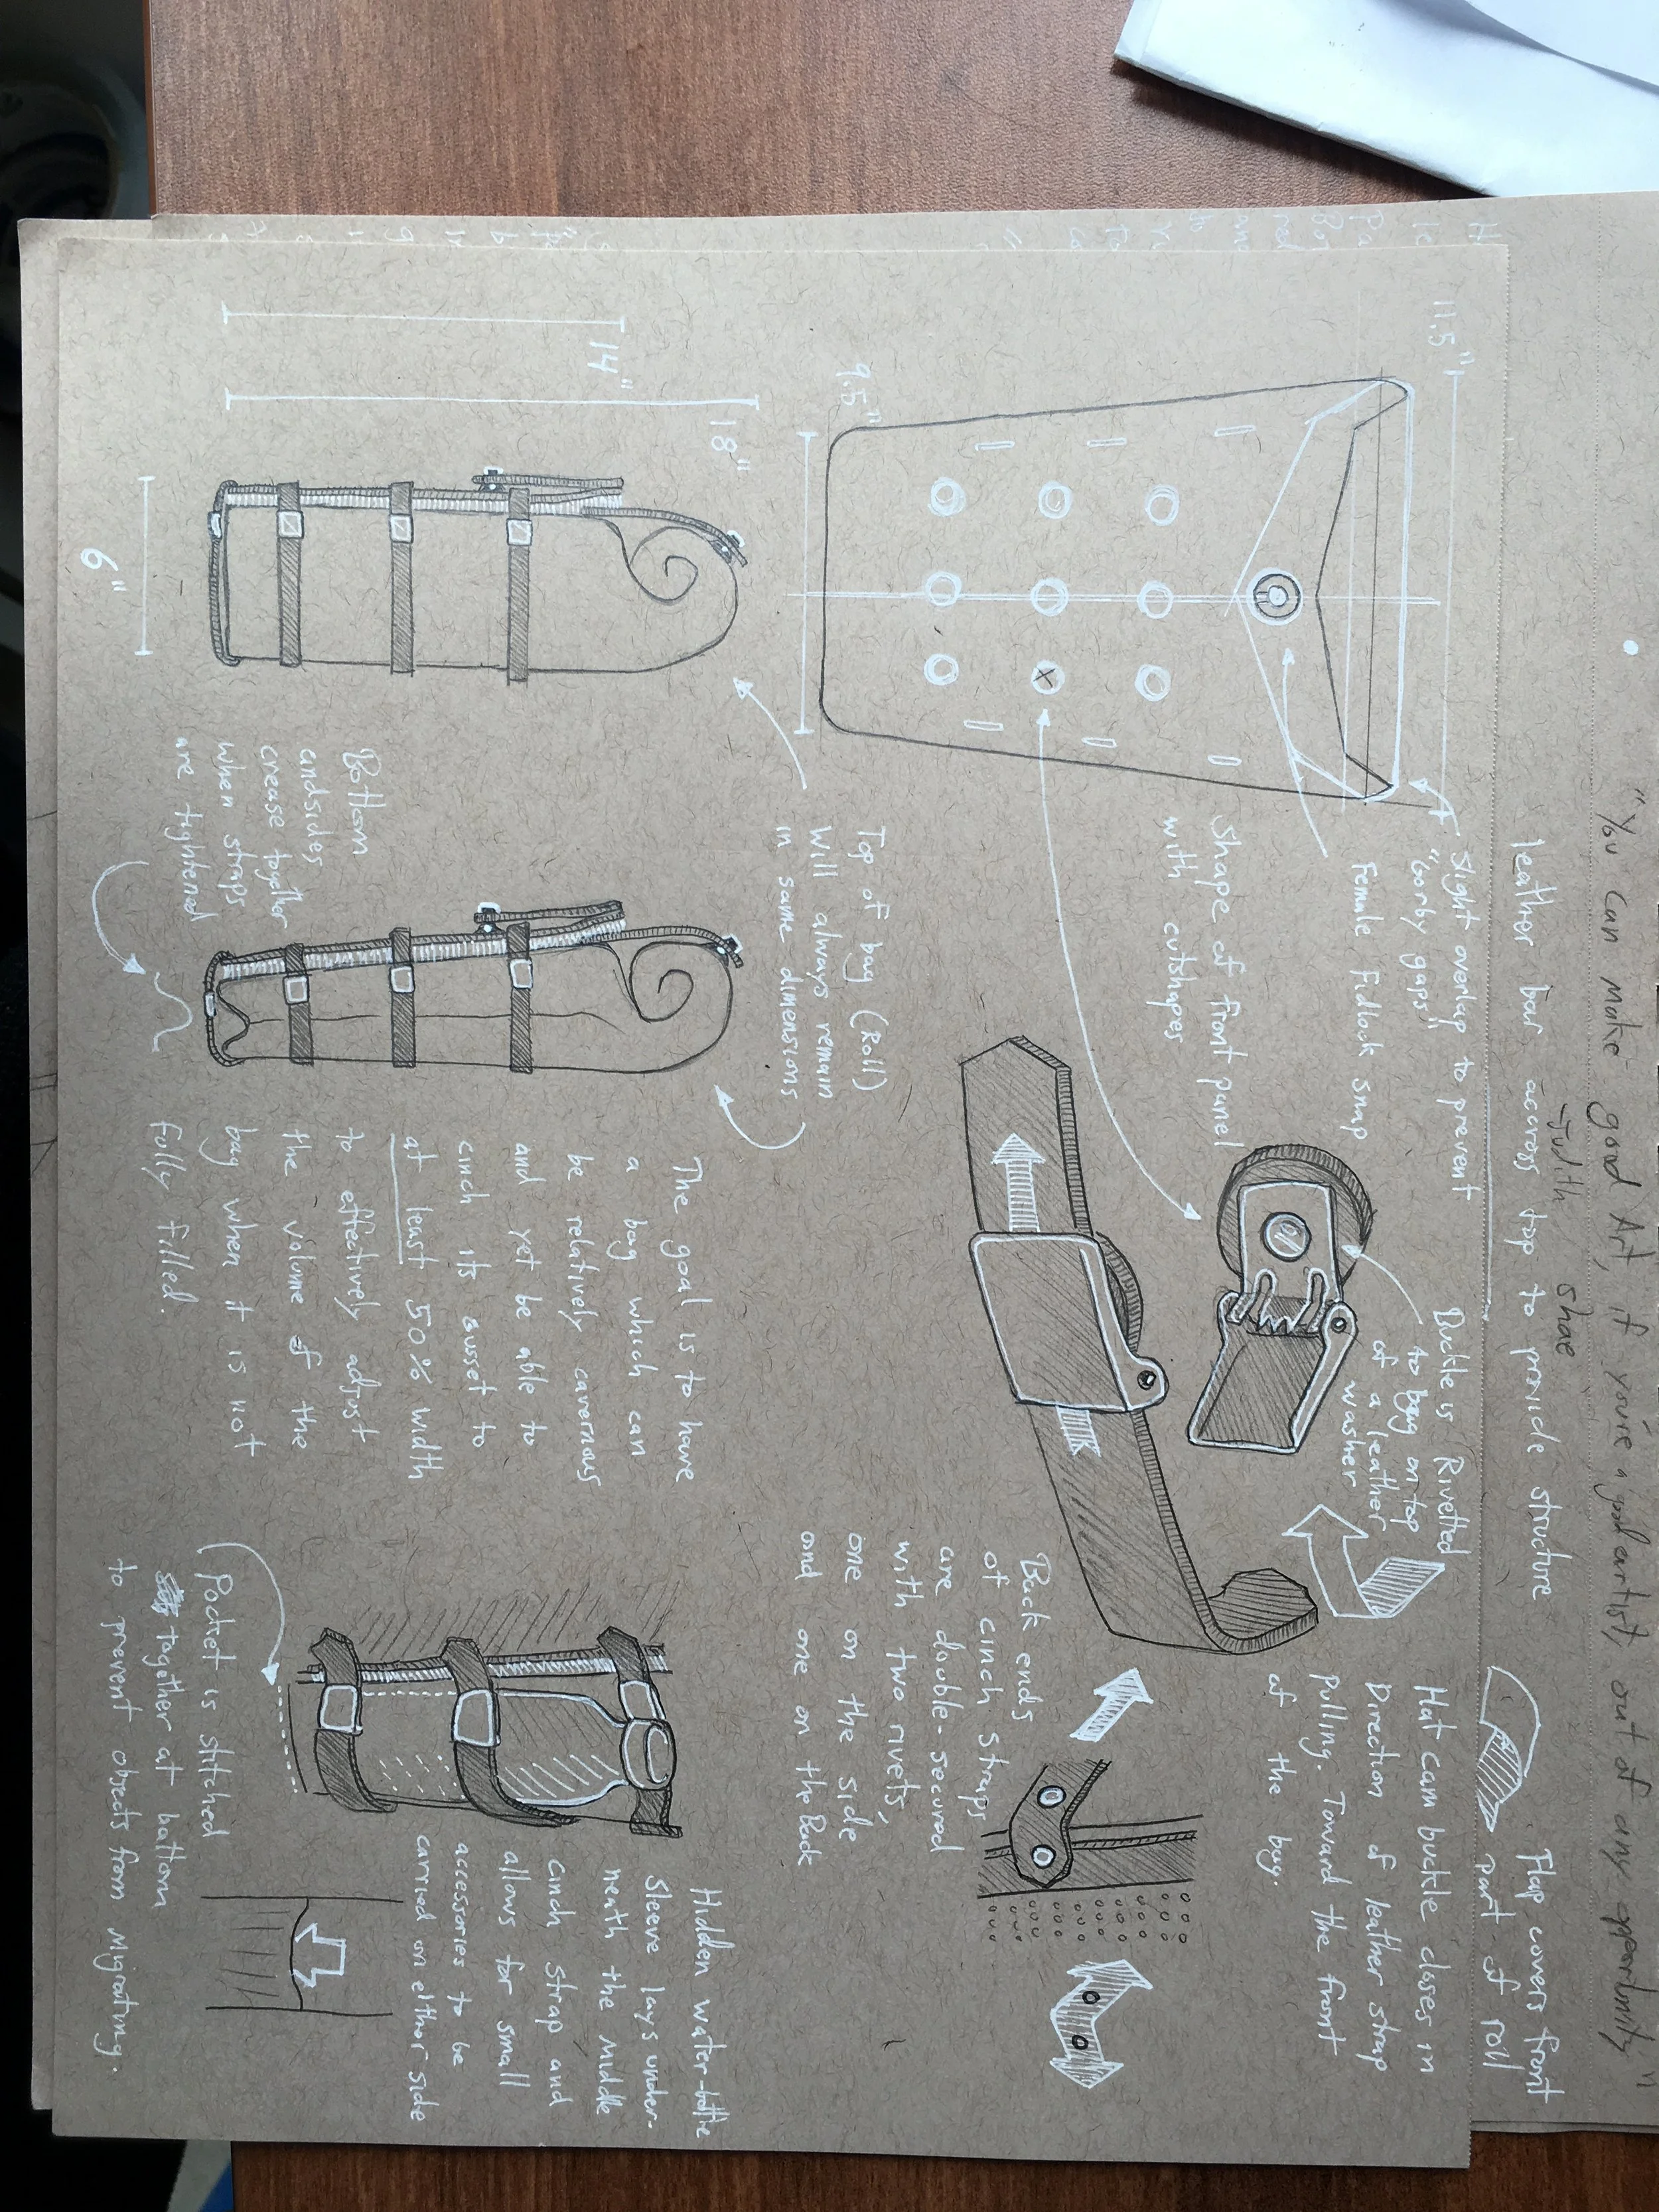 "You can make good Art, if you're a good artist, out of any opportunity"
-Judith shae
leather bar across top to provide structure
Flap covers front
part of roll
11.5"
Slight overlap to prevent
"Gorby gaps"
Female Fidlock snap
Shape of front panel
with cutshapes
9.5"
Buckle is Rivetted
to bag on top
of a leather
washer
Hat cam buckle closes in
Direction of leather strap
pulling. Toward the front
of the bag.
Back ends
of cinch straps
are double-secured
with two rivets,
one on the side
and one on the Back
18"
14"
6"
Top of bag (Roll)
Will always remain
in same dimensions
Bottom
and sides
crease together
when straps
are tightened
The goal is to have
a bag which can
be relatively cavernous
and yet be able to
cinch its gusset to
at least 50% width
to effectively adjust
the volume of the
bag when it is not
fully filled.
Hidden water-bottle
Sleeve lays under-
neath the middle
cinch strap and
allows for small
accessories to be
carried on either side
Pocket is stitched
together at bottom
to prevent objects from Migrating.